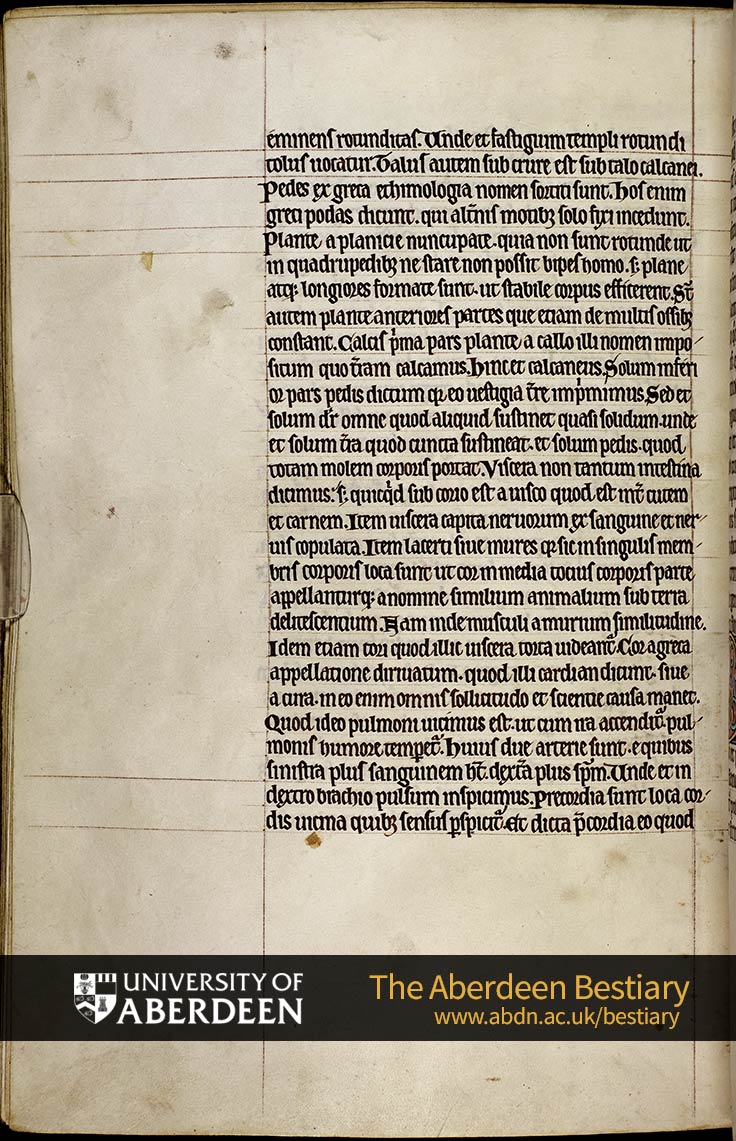 eminens rotunditas. Unde et fastigium templi rotundi
tolus uocatur. Talus autem sub crure est sub talo calcanei.
Pedes ex greca ethimologia nomen sortiti sunt. Hos enim
greci podas dicunt. qui alt̄nis motibꝫ solo fixi incedunt.
Plante a planicie nuncupate. quia non sunt rotunde ut
in quadrupedibꝫ ne stare non possit bipes homo. sꝫ plane
atqꝫ longiores formate sunt. ut stabile corpus efficerent. St̄
autem plante anteriores partes que etiam de multis ossibꝫ
constant. Calcis p͛ma pars plante a callo illi nomen impo
situm quo t̄ram calcamus. Hinc et calcaneus. Solum inferi
or pars pedis dictum qꝛ eo uestigia t̄re imp͛mimus. Sed et
solum dr̄ omne quod aliquid sustinet quasi solidum. unde
et solum t̄ra quod cuncta sustineat. et solum pedis. quod
totam molem corporis portat. Viscera non tantum intestina
dicimus: sꝫ quicq͛d sub corio est a uisco quod est int̄ cutem
et carnem. Item uiscera capita neruorum ex sanguine et ner
uis copulata. Item lacerti siue mures qꝛ sic in singulis mem
bris corporis loca sunt ut cor in media tocius corporis parte
appellanturqꝫ a nomine similium animalium sub terra
delitescentium. Nam inde musculi a murium similitudine.
Idem etiam tori quod illic uiscera torta uideant᷑. Cor a greca
appellatione diriuatum. quod illi cardian dicunt. siue
a cura. in eo enim omnis sollicitudo et scientie causa manet.
Quod ideo pulmoni uicinus est. ut cum ira accendit᷑ pul
monis humore tempet᷑. Huius due arterie sunt. e quibus
sinistra plus sanguinem ht̄. dext̄a plus sp̄m. Unde et in
dextro brachio pulsum inspicimus. Precordia sunt loca cor
dis uicina quibꝫ sensus ꝑspicit᷑. Et dicta p̄cordia eo quod
UNIVERSITY OF
ABERDEEN
The Aberdeen Bestiary
www.abdn.ac.uk/bestiary